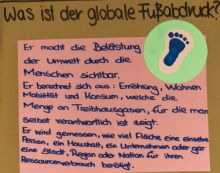 Was ist der globale Fußabdruck?
Er macht die Belastung
der Umwelt durch die
Menschen sichtbar.
Er berechnet sich aus: Ernährung, Wohnen
Mobilität und Konsum, welche die
Menge an Treibhausgasen, für die man
selbst verantwortlich ist zeigt.
Er wird gemessen, wie viel Fläche eine einzelne
Person, ein Haushalt, ein Unternehmen oder gar
eine Stadt, Region oder Nation für ihren
Ressourcenverbrauch benötigt.